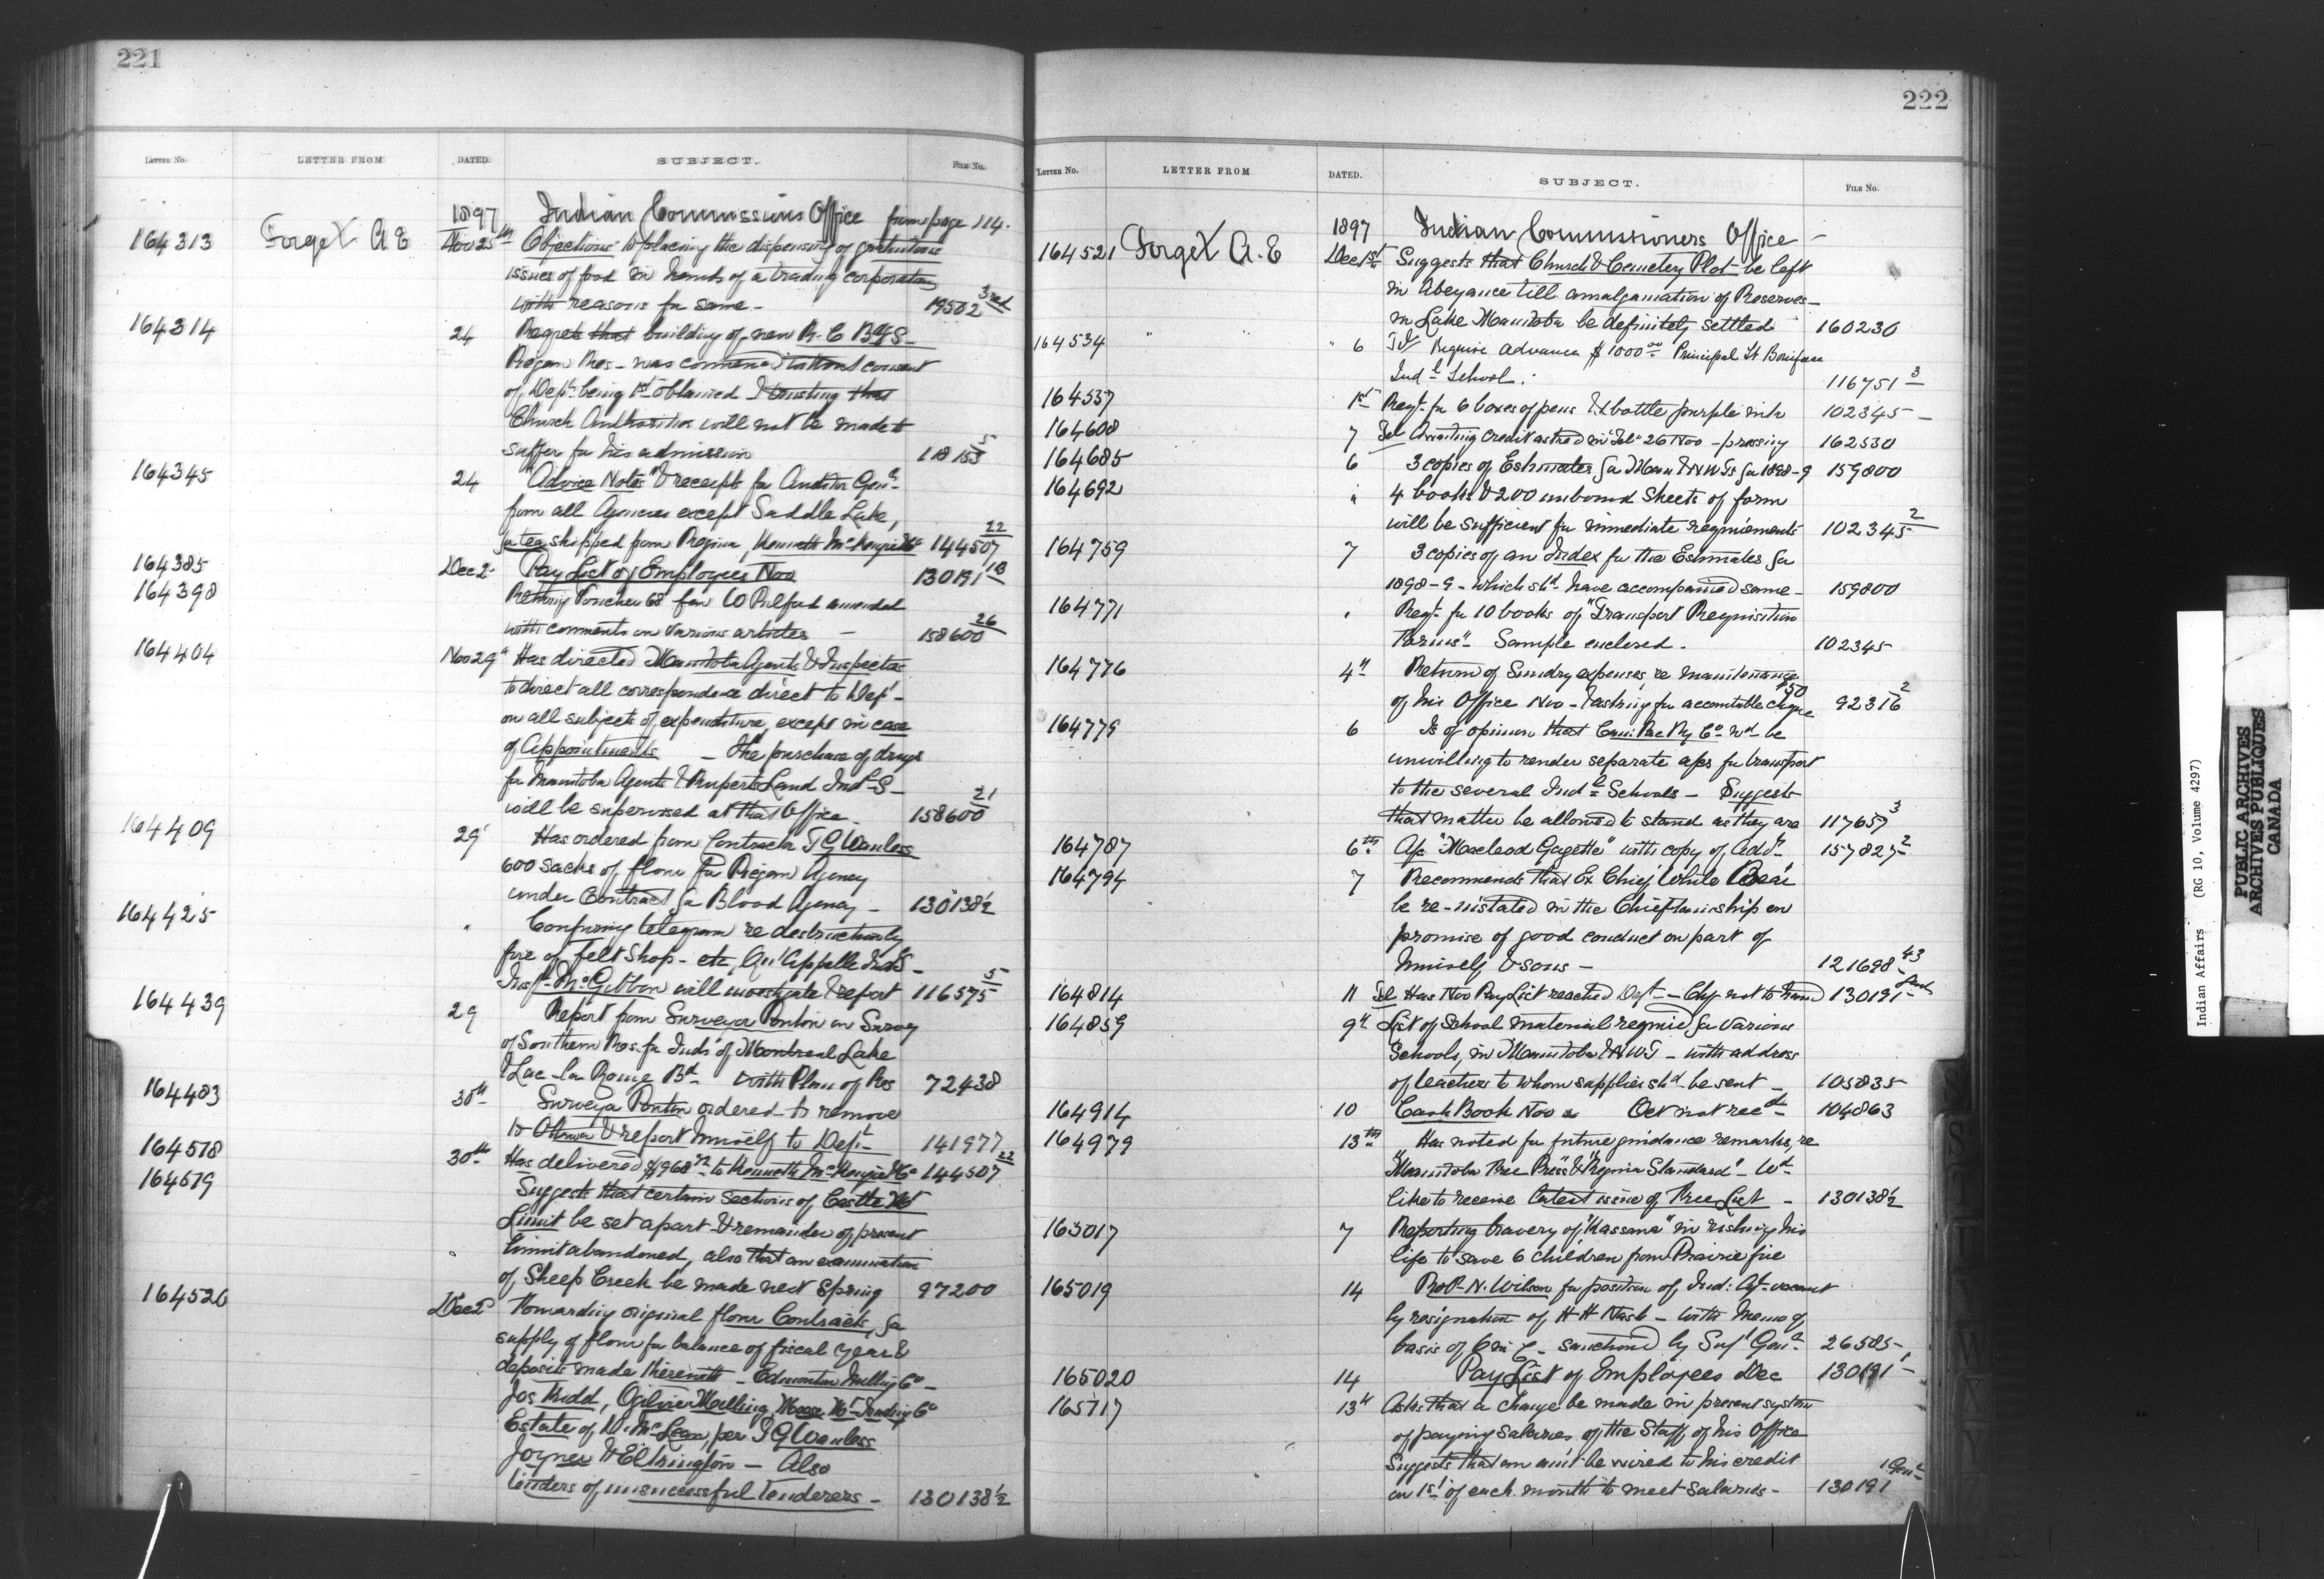 221
LETTER NO. LETTER FROM DATED. SUBJECT. FILE No.
1897 Indian Commissioners Office from page 114.
164313 Forget A E Nov 25th Objections to placing the dispensing of gratuitous
issues of food in hands of a trading corporation
with reasons for same - 19502 3rd
164314 24 Regrets that building of new R.C. Bdg S-
Piegan Res - was commenced without consent
of Dept being 1st obtained & trusting that
Church Authorities will not be made to
suffer for his admission 118153 5
164345 24 "Advice Notes" & receipts for Auditor Genl
from all Agencies except Saddle Lake,
for tea shipped from Regina, Kenneth McKenzie & Co 144507 22
164385 Dec 2 Pay List of Employees Nov 130191 18
164398 Retning Voucher 68 fav W Pulford amended
with comments on various articles - 158600 26
164404 Nov 29 Has directed Manitoba Agents & Inspectors
to direct all correspondence direct to Dept -
on all subjects of expenditure, except in case
of Appointments - The purchase of drugs
for Manitoba Agents & Ruperts Land Indl S -
will be supervised at that Office - 158600 21
164409 29 Has ordered from Contractor T G Wanless
600 sacks of flour for Piegan Agency
under Contract for Blood Agency - 130138½
164425 " Confirming telegram re destruction by
fire of felt Shop - etc, Qu'Appelle Indl S -
Inspr McGibbon will investigate & report 116575 5
164439 29 Report from Surveyor Ponton on Survey
of Southern Res. for Inds of Montreal Lake
& Lac-la-Ronge Bd - with Plan of Res 72438
164483 30th Surveyor Ponton ordered to remove
to Ottawa & report himself to Dept - 141977
164518 30th Has delivered $968 to Kenneth McKenzie & Co 144507 22
164519 Suggests that certain sections of Castle Mt
Limit be set apart & remainder of present
" limit abandoned, also that an examination
of Sheep Creek be made next Spring 97200
164520 Dec 2 Forwarding original flour Contracts, for
supply of flour for balance of fiscal year &
deposits made therewith - Edmonton Milling Co -
Jos Kidd, Ogilvie Milling, Moose Mt Trading Co
Estate of D. McLean, per T G Wanless
Joyner & Elkington - Also
tenders of unsuccessful tenderers - 130138½
222
LETTER No. LETTER FROM DATED. SUBJECT. FILE No.
1897 Indian Commissioners Office -
164521 Forget A. E Dec 1st Suggests that Church & Cemetery Plot be left
in Abeyance till amalgamation of Reserves -
in Lake Manitoba be definitely settled 160230
164534 " " 6 Tel Require advance $1000 00 Principal St Boniface
Indl School. 116751 3
164537 1st Reqt for 6 boxes of pens & 1 bottle purple ink 102345 -
164608 7 Tel Awaiting credit as tred in "Tel" 26 Nov - pressing 162530
164685 6 3 copies of Estimates for Man & NWTs for 1898-9 159800
164692 " 4 books & 200 unbound Sheets of form
will be sufficient for immediate requirements 102345 2
164759 7 3 copies of an Index for the Estimates for
1898-9 - which shd have accompanied same - 159800
164771 " Reqt for 10 books of "Transport Requisition
Forms" - Sample enclosed. 102345
164776 4th Return of Sundry expenses re maintenance
of his Office Nov - & asking for accountable cheque $50 92316 2
164779 6 Is of opinion that Can. Pac Ry Co wd be
unwilling to render separate a/cs for transport
to the several Indl Schools - Suggests
that matter be allowed to stand as they are 117657 3
164787 6th A/c "Macleod Gazette" with copy of Advt 157825 2
164794 7 Recommends that Ex Chief White Bear
be re-instated in the Chieftainship on
promise of good conduct on part of
himself & sons - 121698 43
164814 11 Tel Has Nov Pay List reached Dept - Chq not to hand 130191
164859 9th List of School material required for various
Schools, in Manitoba & NWT - with address
of teachers to whom supplies shd be sent - 105835
164914 10 Cash Book Nov Oct not recd - 104863
164979 13th Has noted for future guidance remarks, re
"Manitoba Free Press" & "Regina Standard" - Wd
like to receive latest issue of Free List - 130138½
165017 7 Reporting bravery of "Kassana" in risking his
life to save 6 children from Prairie fire
165019 14 RoP N. Wilson for position of Ind: Agt vacant
by resignation of H H Nash - with Memo of
basis of O in C - sanctiond by Supt Genl 26585 -
165020 14 Pay List of Employees Dec 130191
165117 13th Asks that a change be made in present system
of paying Salaries of the Staff of his Office
Suggests that an amt be wired to his credit
on 1st of each month to meet salaries - 130191 1 Genl
Indian Affairs (RG 10, Volume 4297)
PUBLIC ARCHIVES
ARCHIVES PUBLIQUES
CANADA